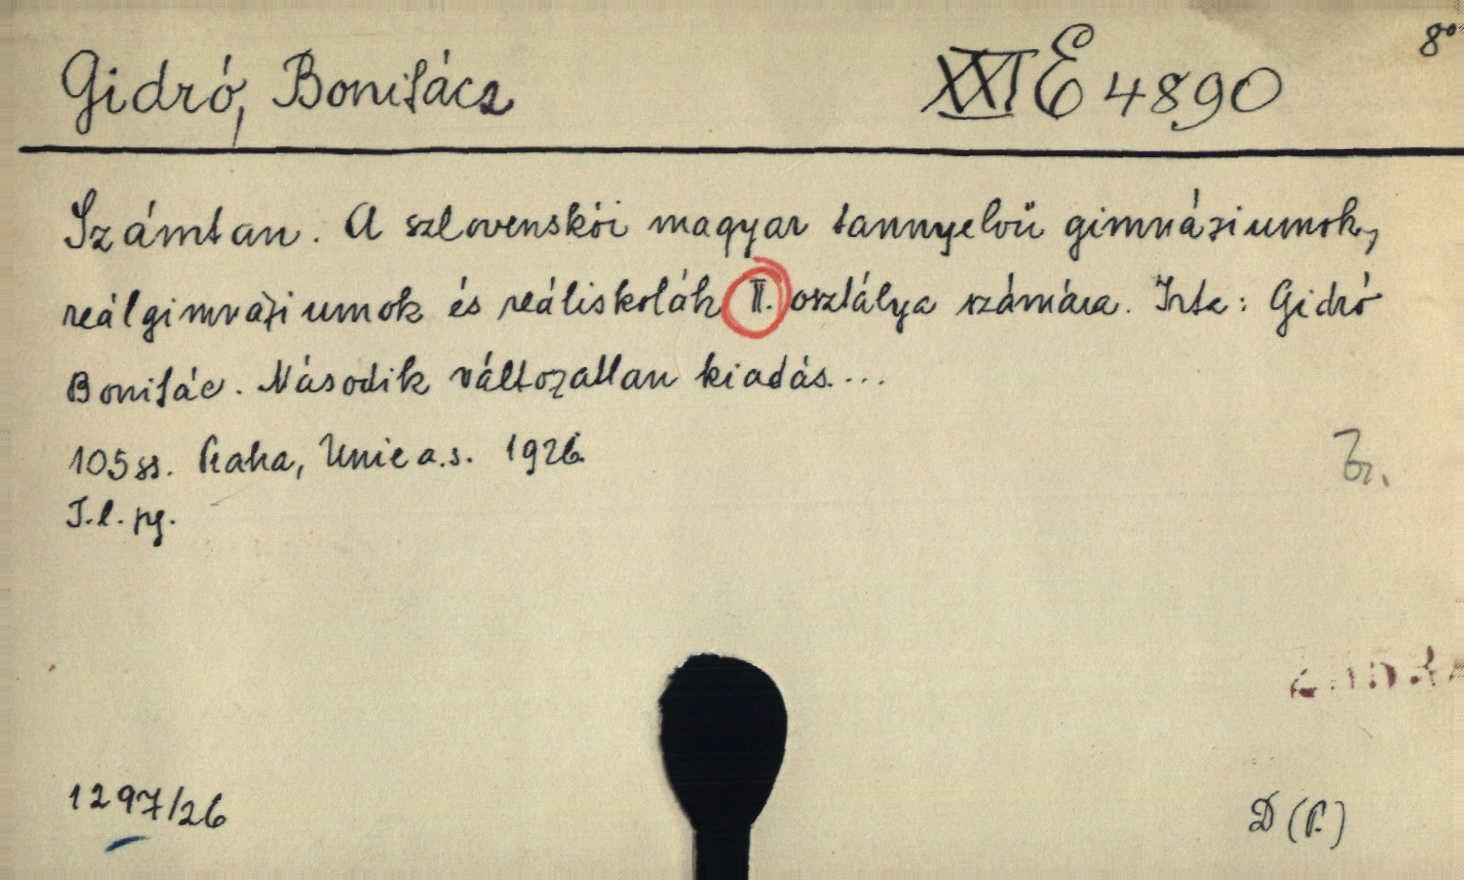 Gidró, Bonifácz XXI E 4890 8°
Számtan. A szlovenskói magyar tannyelvű gimnáziumok,
reálgimnáziumok és reáliskolák II. osztálya számára. Irta: Gidró
Bonifác. Második változatlan kiadás....
105 ss. Praha, Unie a.s. 1926.
I.l. pg.
1297/26
D (P.)